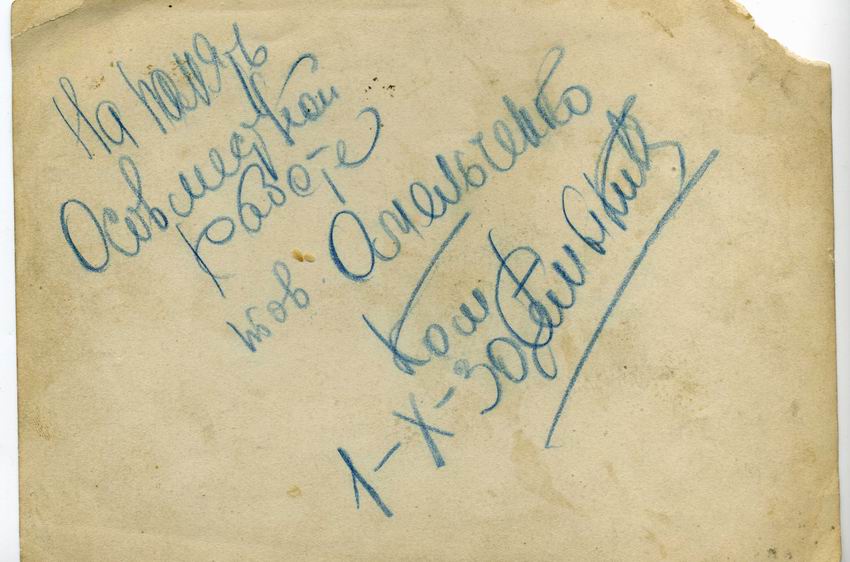 На память
О совместной
работе
тов. Омельченко
Ком
1-X-30